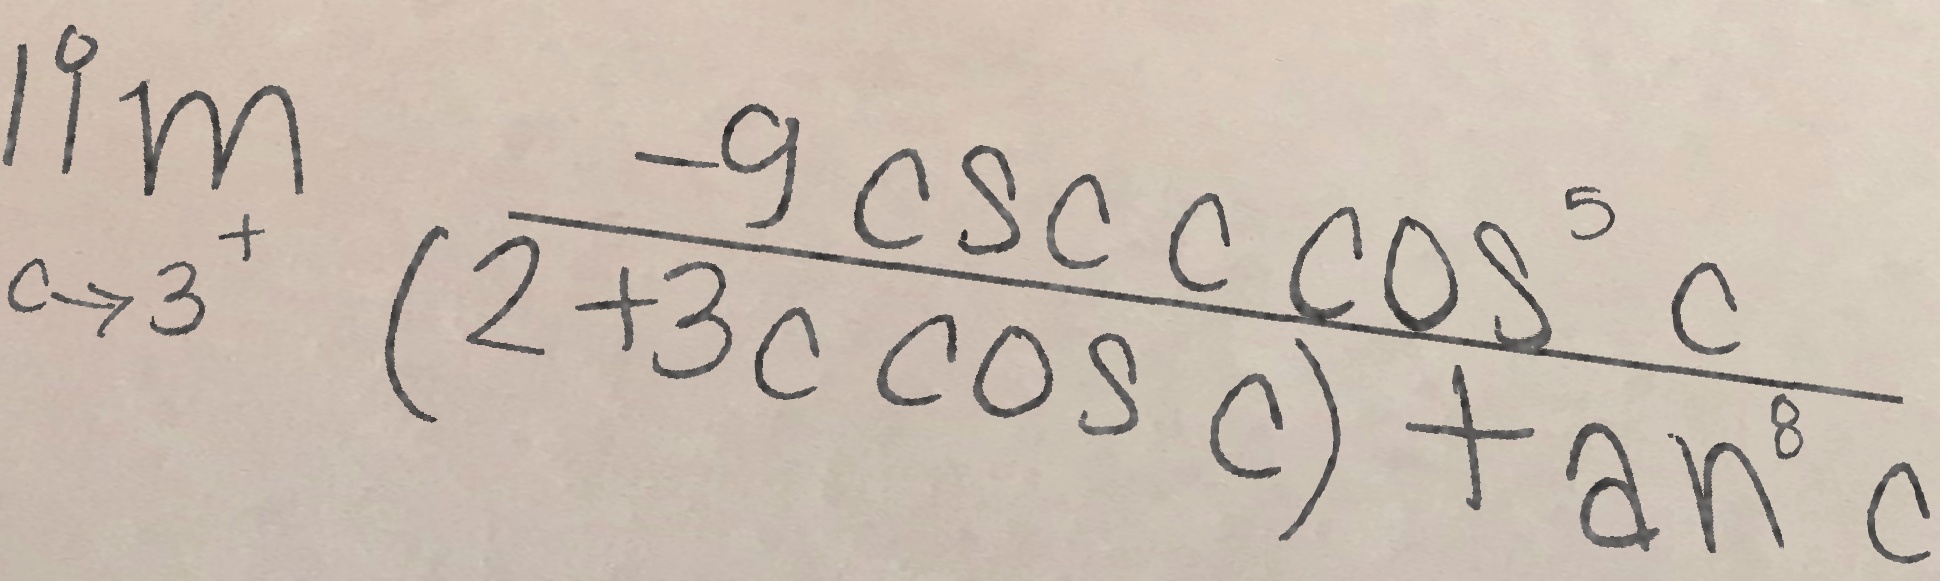 \lim_{c \to 3^+} \frac{-9 \csc c \cos^5 c}{(2+3c \cos c) \tan^8 c}